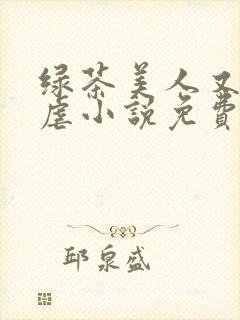 绿茶美人又
虐小説免費
邱泉盛